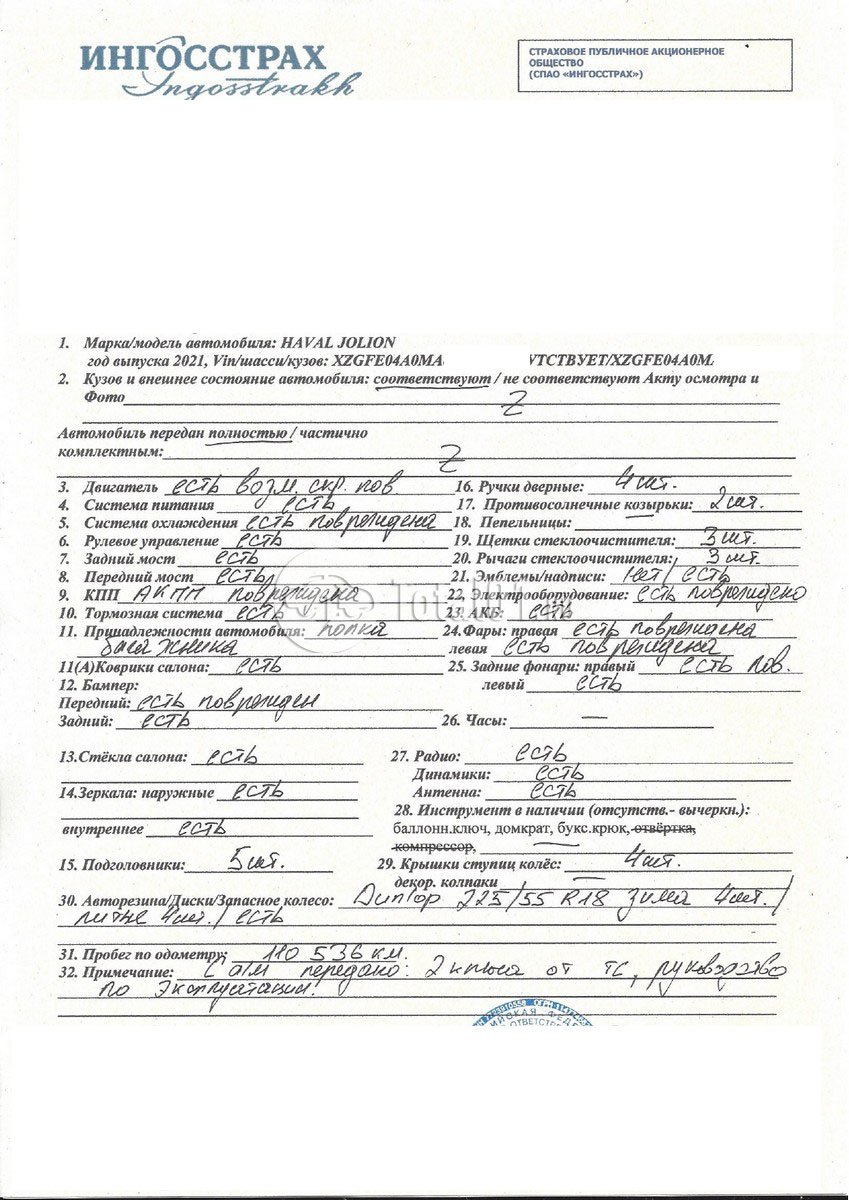 ИНГОССТРАХ
Ingosstrakh
СТРАХОВОЕ ПУБЛИЧНОЕ АКЦИОНЕРНОЕ
ОБЩЕСТВО
(СПАО «ИНГОССТРАХ»)
1. Марка/модель автомобиля: HAVAL JOLION
год выпуска 2021, Vin/шасси/кузов: XZGFE04A0MA VТСТВУЕТ/XZGFE04A0M
2. Кузов и внешнее состояние автомобиля: соответствуют / не соответствуют Акту осмотра и
Фото Z
Автомобиль передан полностью / частично
комплектным: Z
3. Двигатель есть возм. скр. пов
4. Система питания есть
5. Система охлаждения есть повреждена
6. Рулевое управление есть
7. Задний мост есть
8. Передний мост есть
9. КПП АКПП повреждена
10. Тормозная система есть
11. Принадлежности автомобиля: полка
багажника
11(А)Коврики салона: есть
12. Бампер:
Передний: есть поврежден
Задний: есть
16. Ручки дверные: 4 шт.
17. Противосолнечные козырьки: 2 шт.
18. Пепельницы: —
19. Щетки стеклоочистителя: 3 шт.
20. Рычаги стеклоочистителя: 3 шт.
21. Эмблемы/надписи: нет / есть
22. Электрооборудование: есть повреждено
23. АКБ: есть
24.Фары: правая есть повреждена
левая есть повреждена
25. Задние фонари: правый есть пов.
левый есть
26. Часы: —
13.Стёкла салона: есть
14.Зеркала: наружные есть
внутреннее есть
15. Подголовники: 5 шт.
27. Радио: есть
Динамики: есть
Антенна: есть
28. Инструмент в наличии (отсутств.- вычеркн.):
баллонн.ключ, домкрат, букс.крюк, отвёртка,
компрессор, —
29. Крышки ступиц колёс: 4 шт.
декор. колпаки —
30. Авторезина/Диски/Запасное колесо: Dunlop 225/55 R18 зима 4 шт. /
литые 4 шт. / есть
31. Пробег по одометру: 110 536 км.
32. Примечание: С а/м передано: 2 ключа от ТС, руководство
по эксплуатации.